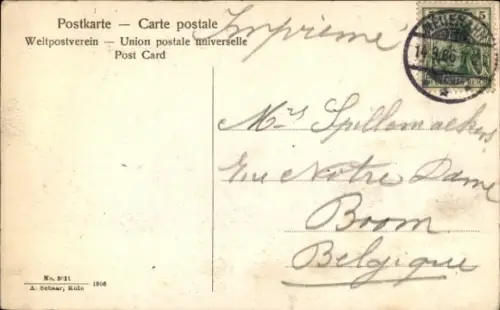 Postkarte — Carte postale
Weltpostverein — Union postale universelle
Post Card
Imprimé
5
Spillemaekers
Notre Dame
Boom
Belgique
1906
A. Schaar, Köln